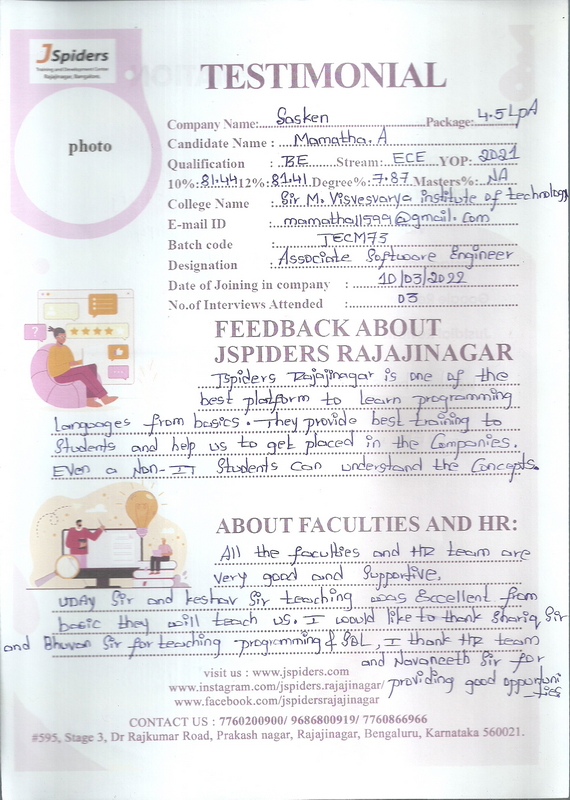 JSpiders
Training and Development Center
Rajajinagar, Bangalore.
TESTIMONIAL
photo
Company Name: Sasken Package: 4.5LpA
Candidate Name : Mamatha.A
Qualification : BE Stream: ECE YOP: 2021
10%: 81.44 12%: 81.41 Degree%: 7.87 Masters%: NA
College Name : Sir M. Visvesvarya institute of technology
E-mail ID : mamatha11599@gmail.com
Batch code : JECM73
Designation : Associate Software Engineer
Date of Joining in company : 10/03/2022
No.of Interviews Attended : 03
FEEDBACK ABOUT
JSPIDERS RAJAJINAGAR
Jspiders Rajajinagar is one of the
best platform to learn programming
Languages from basics. They provide best training to
Students and help us to get placed in the Companies.
Even a Non-IT Students can understand the Concepts.
ABOUT FACULTIES AND HR:
All the faculties and HR team are
very good and Supportive.
UDAY Sir and keshav Sir teaching was Excellent from
basic they will teach us. I would like to thank Shariq Sir
and Bhuvan Sir for teaching programming & SQL, I thank HR team
and Navaneeth Sir for
providing good opportuni
-ties
visit us : www.jspiders.com
www.instagram.com/jspiders.rajajinagar/
www.facebook.com/jspidersrajajinagar
CONTACT US : 7760200900/ 9686800919/ 7760866966
#595, Stage 3, Dr Rajkumar Road, Prakash nagar, Rajajinagar, Bengaluru, Karnataka 560021.